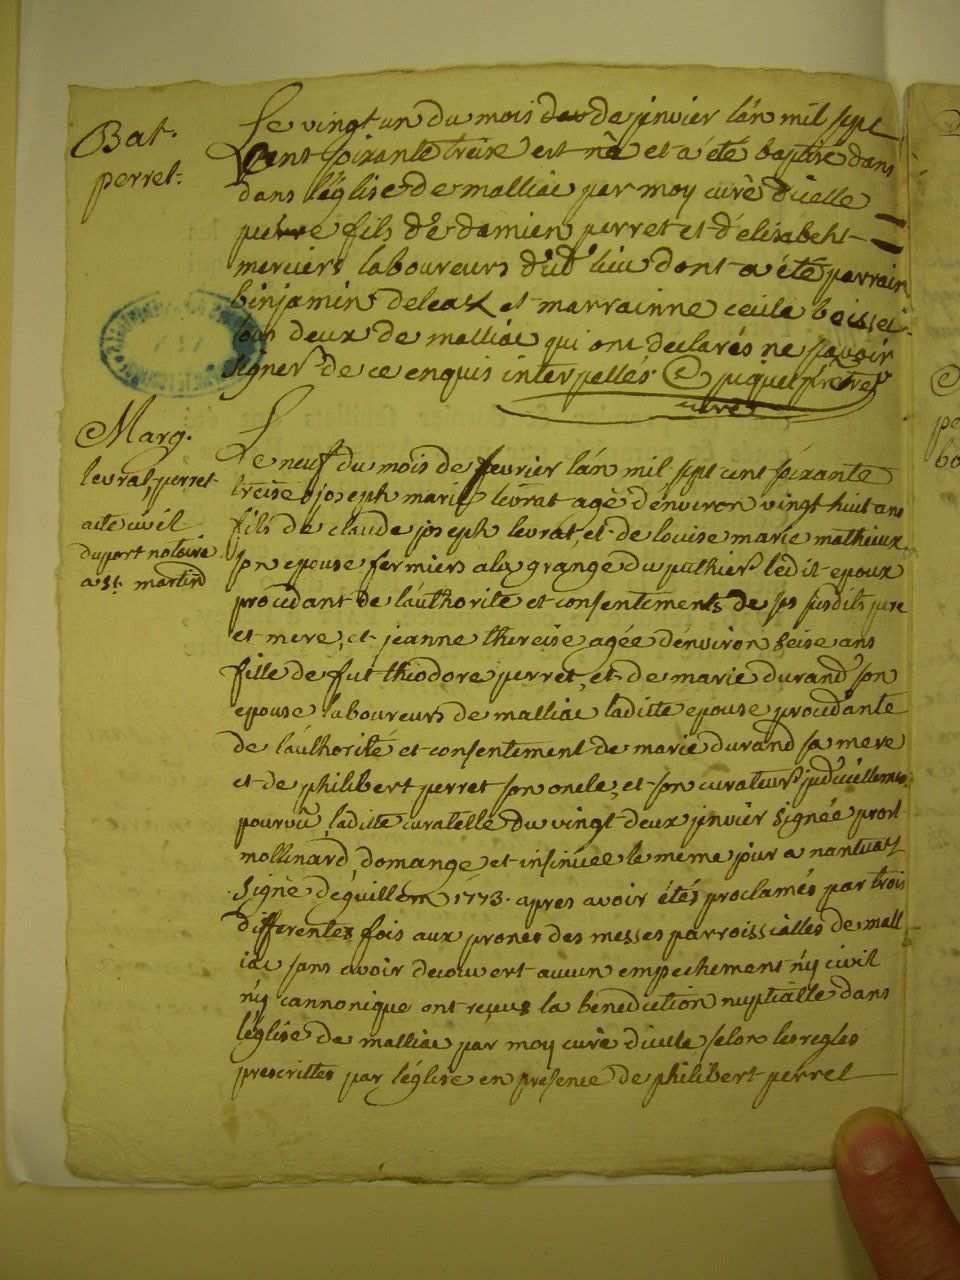 Bat.
perret.
Le vingt un du mois de janvier lán mil sept
Cent soixante treize est né et a été baptisé dans
dans léglise de malliac par moy curé dicelle
pierre fils de damien perret et délisabeht
merciers laboureurs dudt lieu dont a été parrain
binjamin deleax et marrainne cecile beissei
tous deux de malliac qui ont declarés ne savoir
signer de ce enquis interpellés. piquet prêtre
curé
Marg.
levrat, perret
acte civil
duport notoire
a st. martin
Le neuf du mois de fevrier lán mil sept cent soixante
treise joseph marie levrat agé dénviron vingt huit ans
fils de claude joseph levrat, et de louise marie mathieux
son epouse fermiers alа grange du puthier ledit epoux
procedant de láuthorité et consentements de ses susdits pere
et mere, et jeanne thereise agée dénviron seise ans
fille de fut théodore perret, et de marie durand son
epouse laboureurs de malliac laditte epouse procedánte
de láuthorité et consentement de marie durand sa mere
et de philibert perret son oncle, et son curateur judiciellement
pourvû, laditte curatelle du vingt deux janvier signée
mollinard, domange et insinuée le meme jour a nantuat
signé deguillem 1773. apres avoir étés proclamés par trois
differentes fois aux prones des messes parroissialles de mall
iac sans avoir decouvert aucun empechement ny civil
ny cannonique ont reçus la benediction nuptialle dans
léglise de malliac par moy curé dicelle selon les regles
prescrittes par léglise en presence de philibert perret